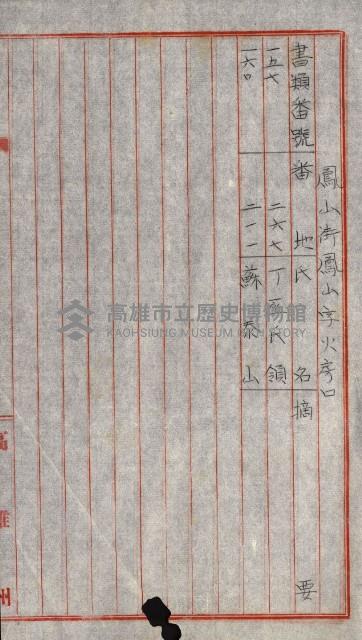 鳳山街鳳山字火房口
書類番號 番地 氏名 摘要
一五七 二六七 丁王氏領
一六〇 二一一 蘇泰山
高雄市立歷史博物館
KAOHSIUNG MUSEUM OF HISTORY
高雄州